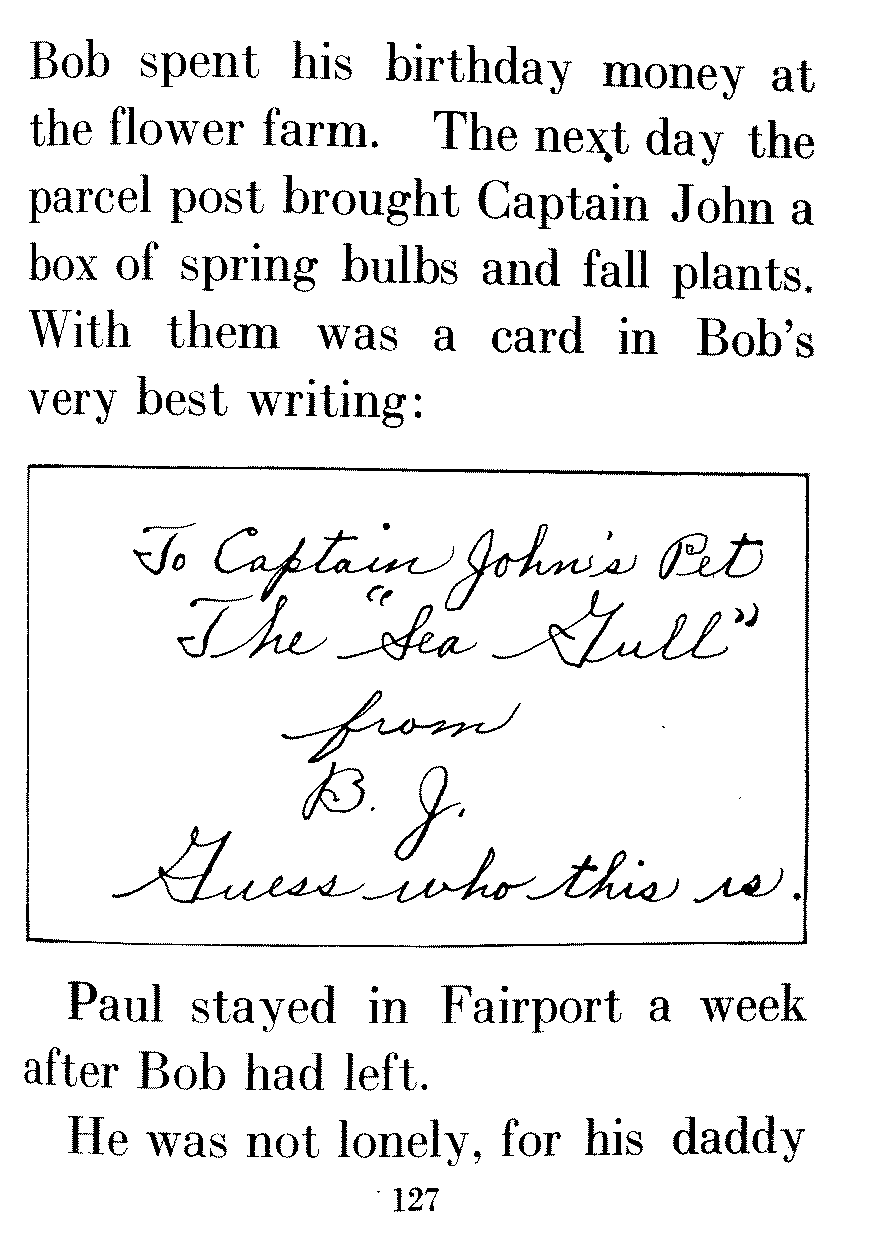 Bob spent his birthday money at
the flower farm. The next day the
parcel post brought Captain John a
box of spring bulbs and fall plants.
With them was a card in Bob's
very best writing:
To Captain John's Pet
The "Sea Gull"
from
B. J.
Guess who this is.
Paul stayed in Fairport a week
after Bob had left.
He was not lonely, for his daddy
127